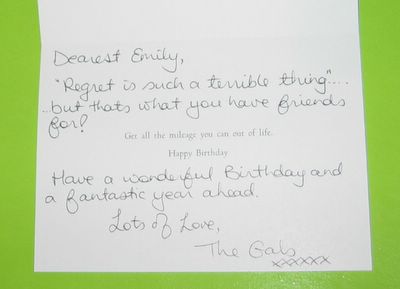 Dearest Emily,
"Regret is such a terrible thing"....
...but thats what you have friends
for!
Get all the mileage you can out of life.
Happy Birthday
Have a wonderful Birthday and
a fantastic year ahead.
Lots of Love,
The Gals
xxxxxx